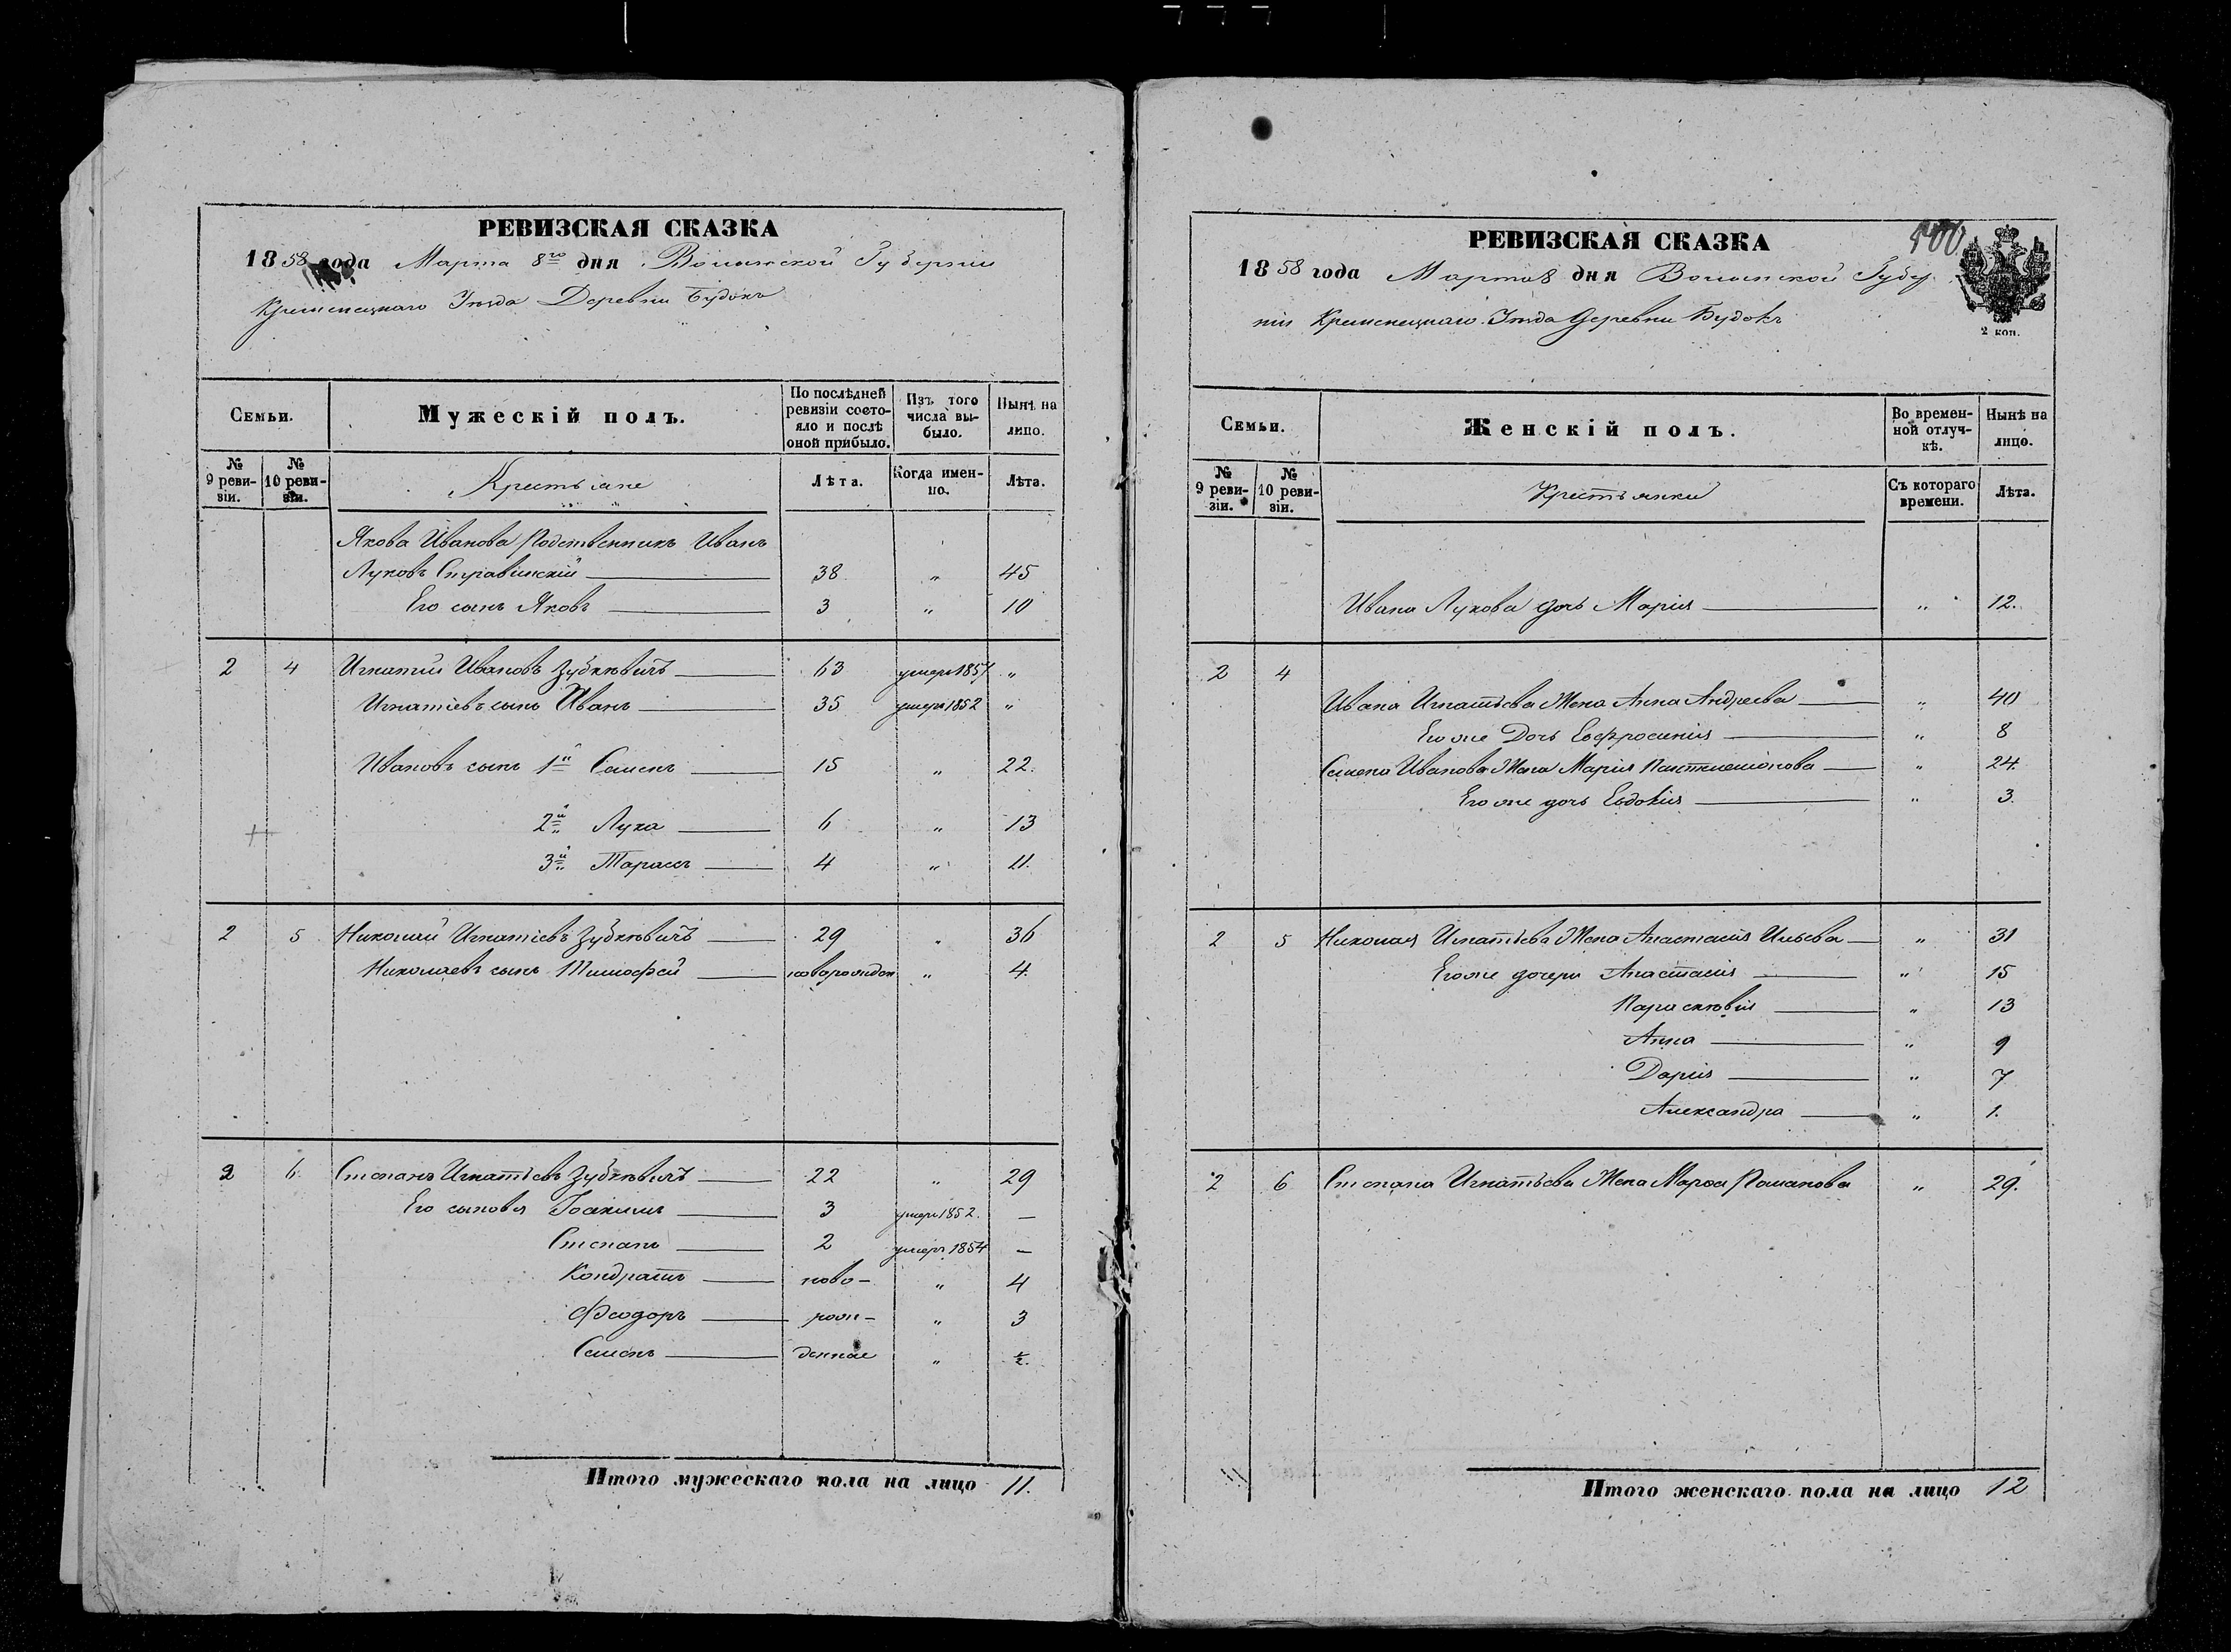 РЕВИЗСКАЯ СКАЗКА
1858 года Марта 8го дня Волынской Губернии
Кременецкаго Уезда Деревни Будокъ
Семьи.
Мужескій полъ.
По послѣдней ревизіи состояло и послѣ оной прибыло.
Изъ того числа выбыло.
Нынѣ на лицо.
№ 9 ревизіи.
№ 10 ревизіи.
Крестьяне
Лѣта.
Когда именно.
Лѣта.
Якова Иванова Родственникъ Иванъ
Луковъ 38 „ 45
Его сынъ Яковъ 3 „ 10
2 4 Игнатій Ивановъ Зубкѣвичъ 63 умеръ 1857 „
Игнатіевъ сынъ Иванъ 35 умеръ 1852 „
Ивановъ сынъ 1й Семенъ 15 „ 22.
2й Лука 6 „ 13
3й Тарасъ 4 „ 11.
2 5 Николай Игнатіевъ Зубкѣвичъ 29 „ 36
Николаевъ сынъ Тимофей новорожден „ 4
2 6 Степанъ Игнатіевъ Зубкѣвичъ 22 „ 29
Его сыновья Іоакимъ 3 умеръ 1852. —
Степанъ 2 умеръ 1854 —
Кондратъ ново- „ 4
Феодоръ рож- „ 3
Семенъ денные „ ½.
Итого мужескаго пола на лицо 11.
РЕВИЗСКАЯ СКАЗКА
1858 года Марта 8 дня Волынской Губер
ніи Кременецкаго Уезда Деревни Будокъ
2 коп.
Семьи.
Женскій полъ.
Во временной отлучкѣ.
Нынѣ на лицо.
№ 9 ревизіи.
№ 10 ревизіи.
Крестьянки
Съ котораго времени.
Лѣта.
Ивана Лукова дочь Марія „ 12.
2 4
Ивана Игнатьева Жена Анна Андреева „ 40
Его же Дочь Евфросинія „ 8
Семена Иванова Жена Марія „ 24.
Его же дочь Евдокія „ 3.
2 5 Николая Игнатьева Жена Анастасія Ильева „ 31
Его же дочери Анастасія „ 15
Параскѣвія „ 13
Анна „ 9
Дарія „ 7
Александра „ 1.
2 6 Степана Игнатьева Жена Марфа Романова „ 29.
Итого женскаго пола на лицо 12